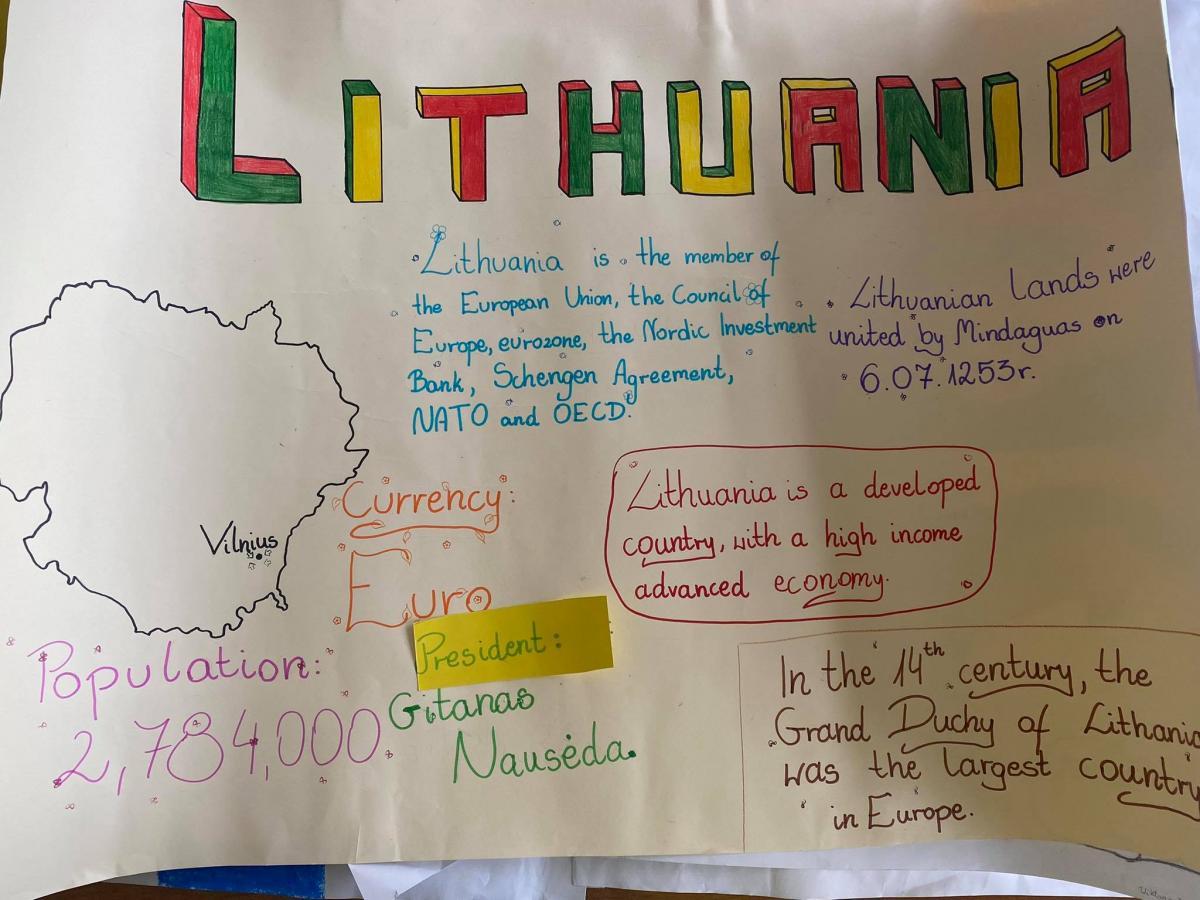 LITHUANIA
Lithuania is the member of
the European Union, the Council of
Europe, eurozone, the Nordic Investment
Bank, Schengen Agreement,
NATO and OECD.
Lithuanian lands were
united by Mindaguas on
6.07.1253r.
Vilnius
Currency:
Euro
Lithuania is a developed
country, with a high income
advanced economy.
Population:
2,784,000
President:
Gitanas
Nausėda.
In the 14th century, the
Grand Duchy of Lithania
was the largest country
in Europe.